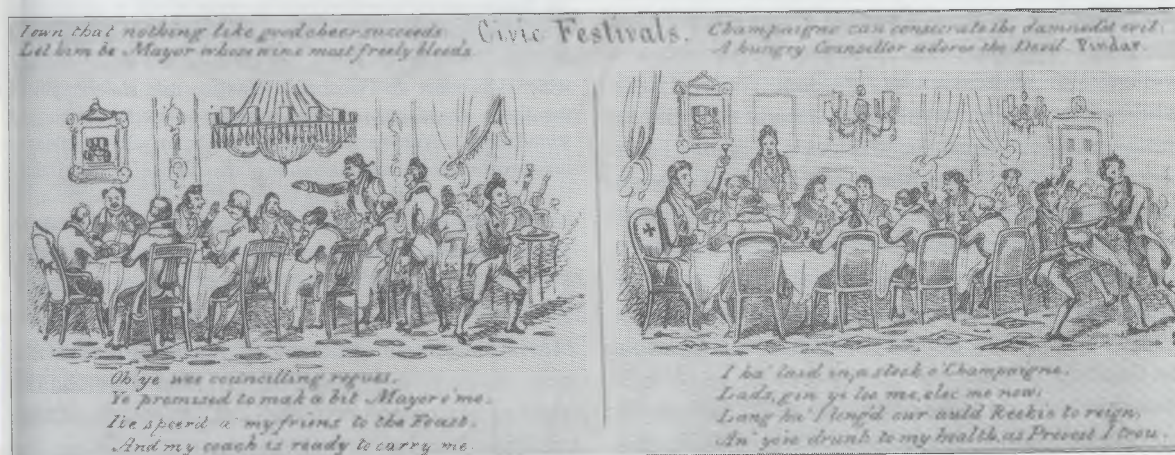 I own that nothing like good cheer succeeds
Let him be Mayor whose wine most freely bleeds.
Civic Festivals.
Champaigne can consecrate the damnedst evil:
A hungry Counsellor adores the Devil. Pindar.
Oh, ye wee councilling rogues,
Ye promised to mak a bit Mayor o' me.
I've speer'd a' my friens to the Feast.
And my coach is ready to carry me.
I ha' laid in, a stock o' Champaigne.
Lads, gin ye loo me, elec me now;
Lang ha' I long'd our auld Reekie to reign,
An' you've drunk to my health, as Provost I trou.